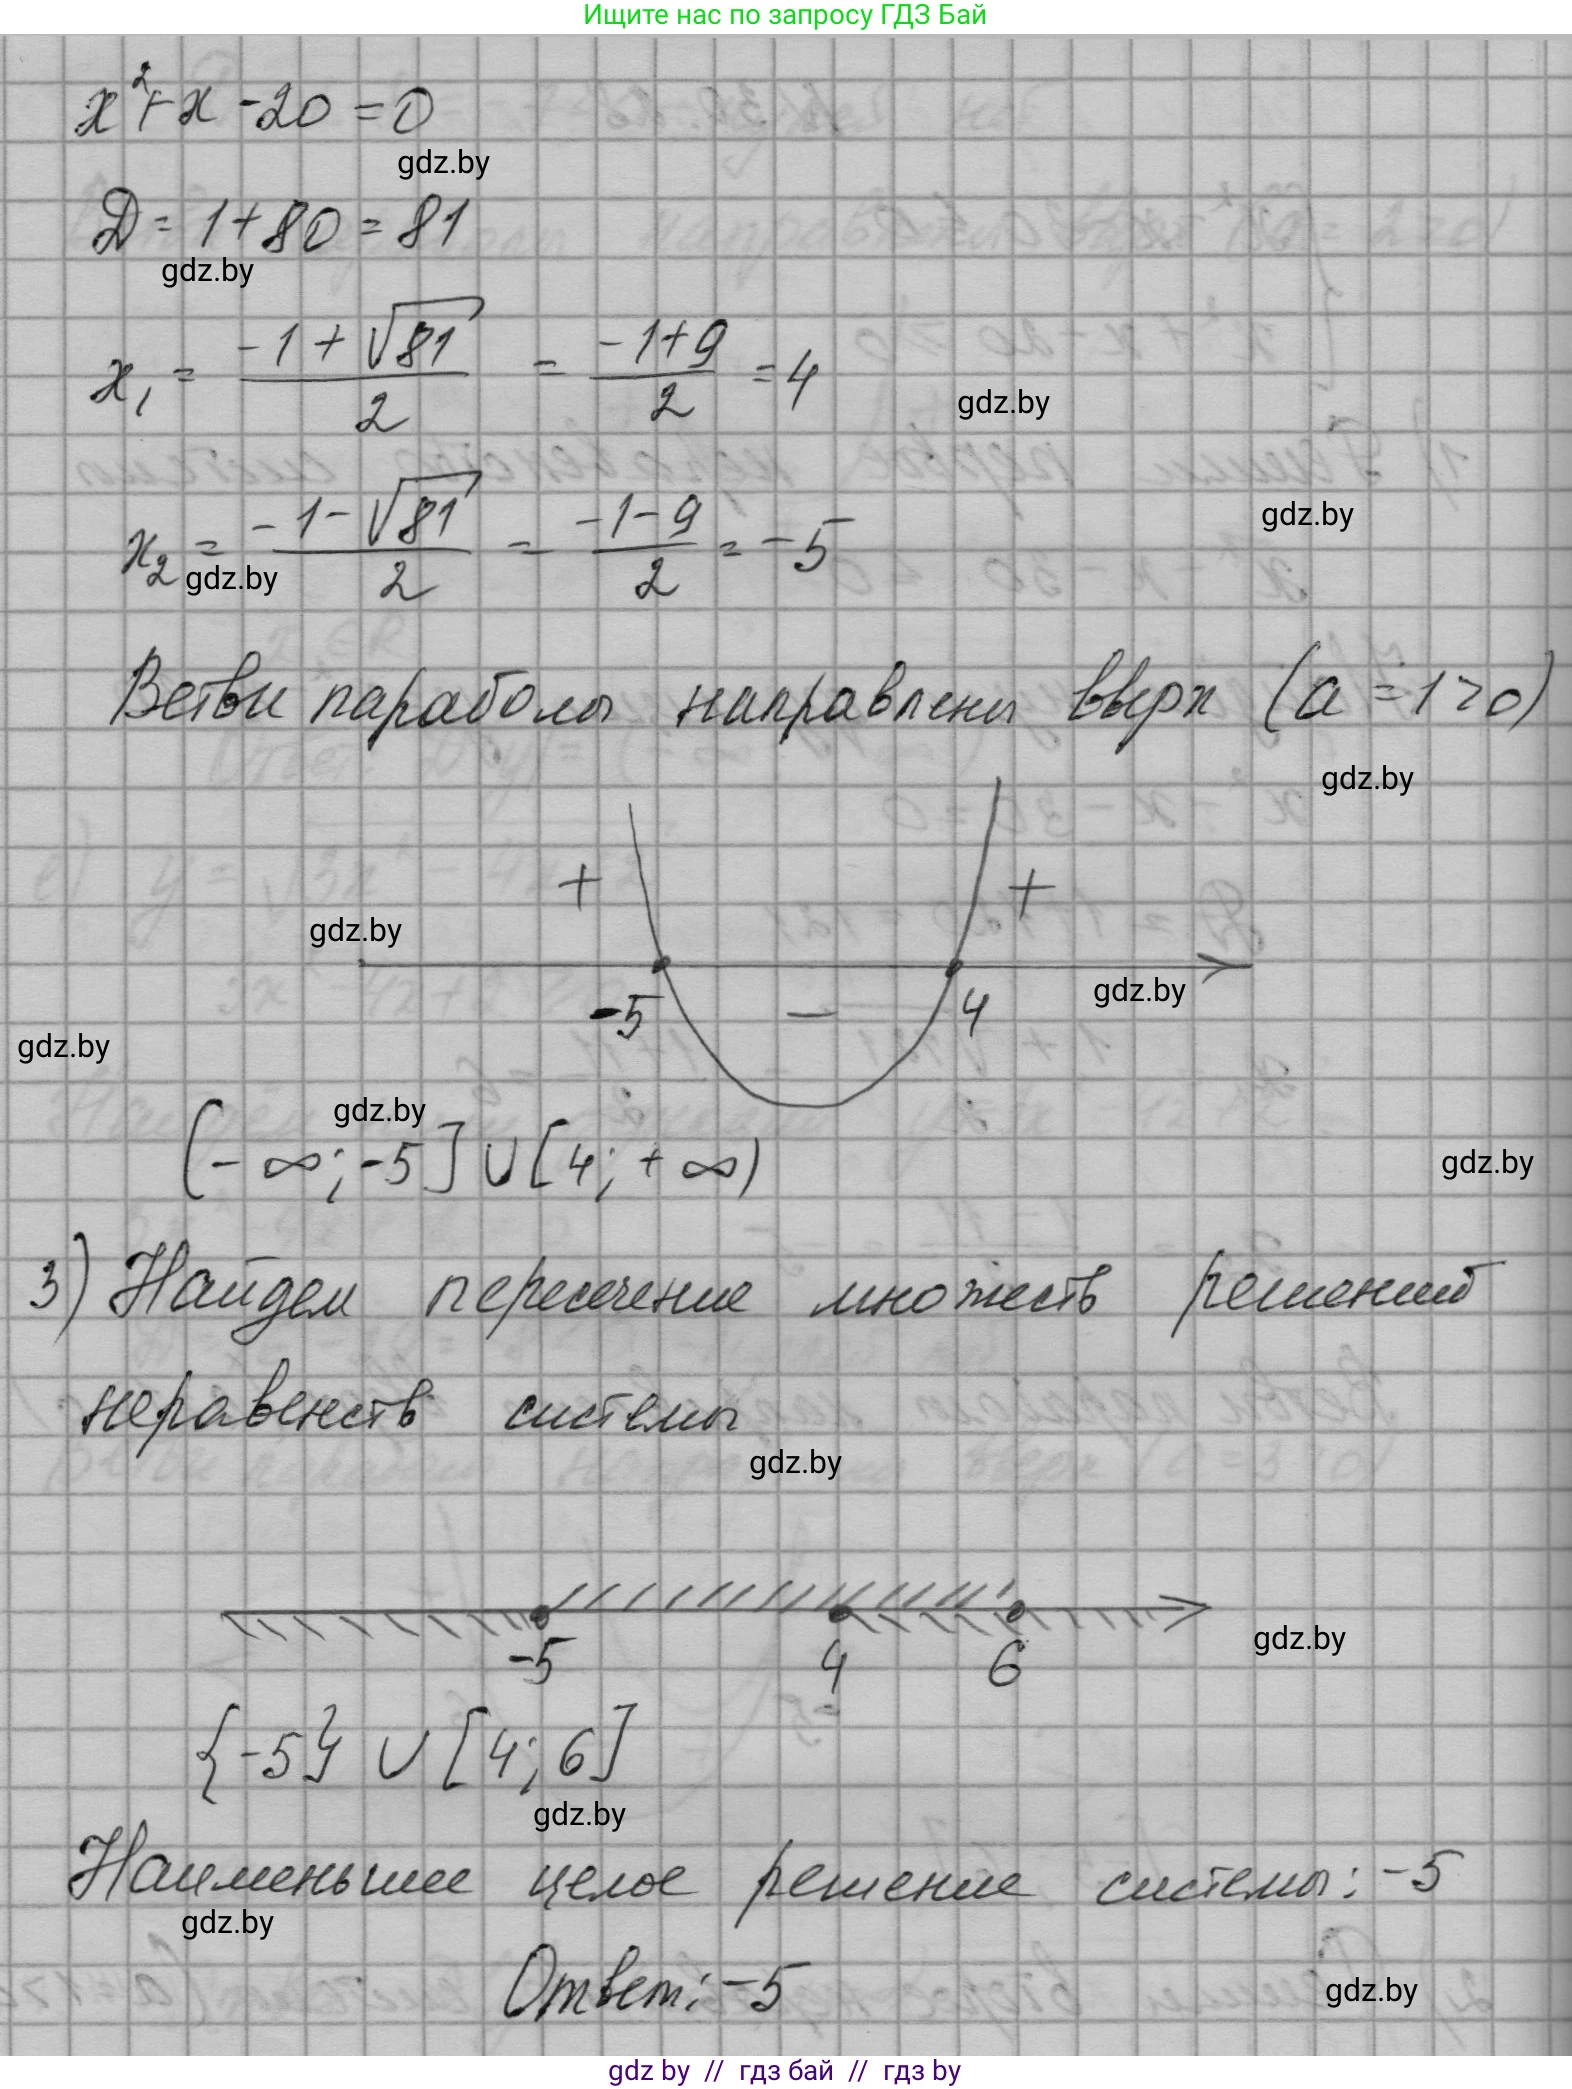 Ищите нас по запросу ГДЗ Бай
x² + x - 20 = 0
gdz.by
D = 1 + 80 = 81
gdz.by
x₁ = (-1 + √81)/2 = (-1 + 9)/2 = 4
gdz.by
gdz.by
x₂ = (-1 - √81)/2 = (-1 - 9)/2 = -5
gdz.by
Ветви параболы направлены вверх (a = 1 > 0)
gdz.by
+ +
gdz.by
gdz.by
-5 - 4
gdz.by
gdz.by
(-∞; -5] ∪ [4; +∞)
gdz.by
3) Найдем пересечение множеств решений
неравенств системы
gdz.by
gdz.by
-5 4 6
{-5} ∪ [4; 6]
gdz.by
Наименьшее целое решение системы: -5
gdz.by
Ответ: -5
gdz.by
gdz by // гдз бай // гдз by